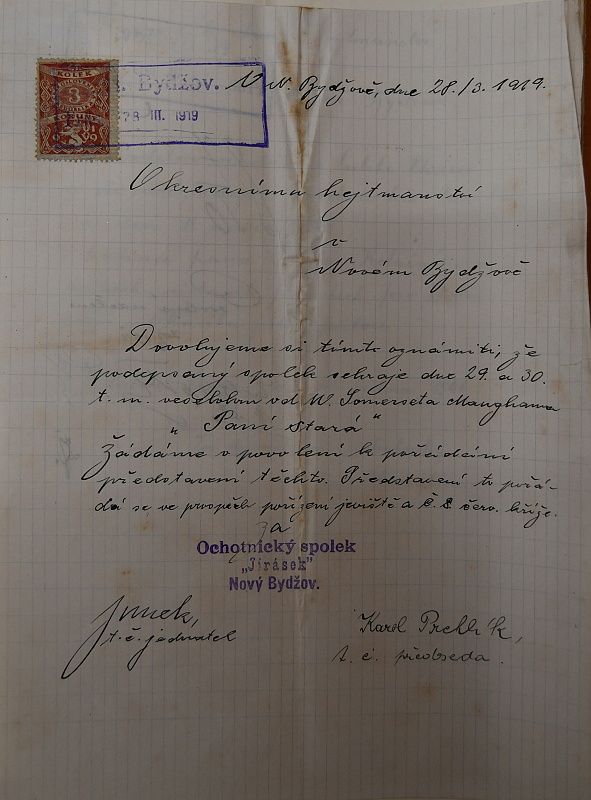 KOLEK
3
KORUNY
1919
N. Bydžov.
28 III. 1919
V N. Bydžově, dne 28./3. 1919.
Okresnímu hejtmanství
v
Novém Bydžově
Dovolujeme si tímto oznámiti, že
podepsaný spolek sehraje dne 29. a 30.
t. m. veselohru od W. Somerseta Maughama
„Paní stará“
Žádáme o povolení k pořádání
představení těchto. Představení to pořá-
dá se ve prospěch pořízení jeviště a Č. S. červ. kříže.
za
Ochotnický spolek
„Jirásek“
Nový Bydžov.
t. č. jednatel
Karel
t. č. předseda.